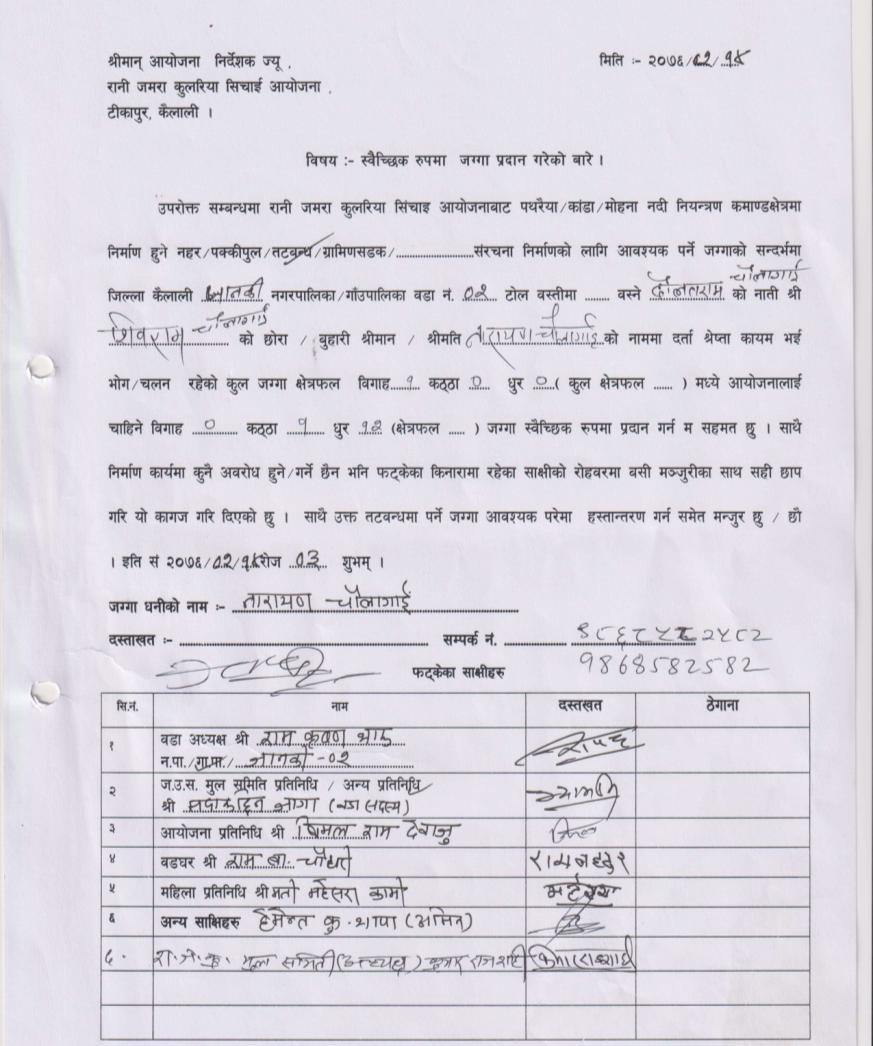 श्रीमान् आयोजना निर्देशक ज्यू , मिति :- २०७६/०२/१५
रानी जमरा कुलरिया सिचाई आयोजना ,
टीकापुर, कैलाली ।
विषय :- स्वैच्छिक रुपमा जग्गा प्रदान गरेको बारे ।
उपरोक्त सम्बन्धमा रानी जमरा कुलरिया सिंचाइ आयोजनाबाट पथरैया/कांडा/मोहना नदी नियन्त्रण कमाण्डक्षेत्रमा
निर्माण हुने नहर/पक्कीपुल/तटबन्ध/ग्रामिणसडक/........................संरचना निर्माणको लागि आवश्यक पर्ने जग्गाको सन्दर्भमा
जिल्ला कैलाली जानकी नगरपालिका/गाँउपालिका वडा नं. ०२ टोल वस्तीमा ........ वस्ने दौलतराम चौलागाई को नाती श्री
शिवराम चौलागाई को छोरा / बुहारी श्रीमान / श्रीमति नारायण चौलागाई को नाममा दर्ता श्रेष्ता कायम भई
भोग/चलन रहेको कुल जग्गा क्षेत्रफल विगाह १ कठ्ठा ० धुर ० ( कुल क्षेत्रफल ...... ) मध्ये आयोजनालाई
चाहिने विगाह ० कठ्ठा १ धुर १२ (क्षेत्रफल ..... ) जग्गा स्वैच्छिक रुपमा प्रदान गर्न म सहमत छु । साथै
निर्माण कार्यमा कुनै अवरोध हुने/गर्ने छैन भनि फट्केका किनारामा रहेका साक्षीको रोहवरमा बसी मञ्जुरीका साथ सही छाप
गरि यो कागज गरि दिएको छु । साथै उक्त तटवन्धमा पर्ने जग्गा आवश्यक परेमा हस्तान्तरण गर्न समेत मन्जुर छु / छौ
। इति सं २०७६/०२/१५ रोज ०३ शुभम् ।
जग्गा धनीको नाम :- नारायण चौलागाई
दस्ताखत :- सम्पर्क नं. ९८६८५८२५८२
9868582582
फट्केका साक्षीहरु
सि.नं. नाम दस्तखत ठेगाना
१ वडा अध्यक्ष श्री राम कृष्ण
न.पा./गा.पा./ जानकी -०२
२ ज.उ.स. मुल समिति प्रतिनिधि / अन्य प्रतिनिधि
श्री (वडा सदस्य)
३ आयोजना प्रतिनिधि श्री विमल राम देवाजु
४ वडघर श्री राम ब. चौधरी रामबहादुर
५ महिला प्रतिनिधि श्रीमती महेसरा कामी
६ अन्य साक्षिहरु हेमन्त कु. थापा (अमिन)
रा.ज.कु. मूल समिति (अध्यक्ष)